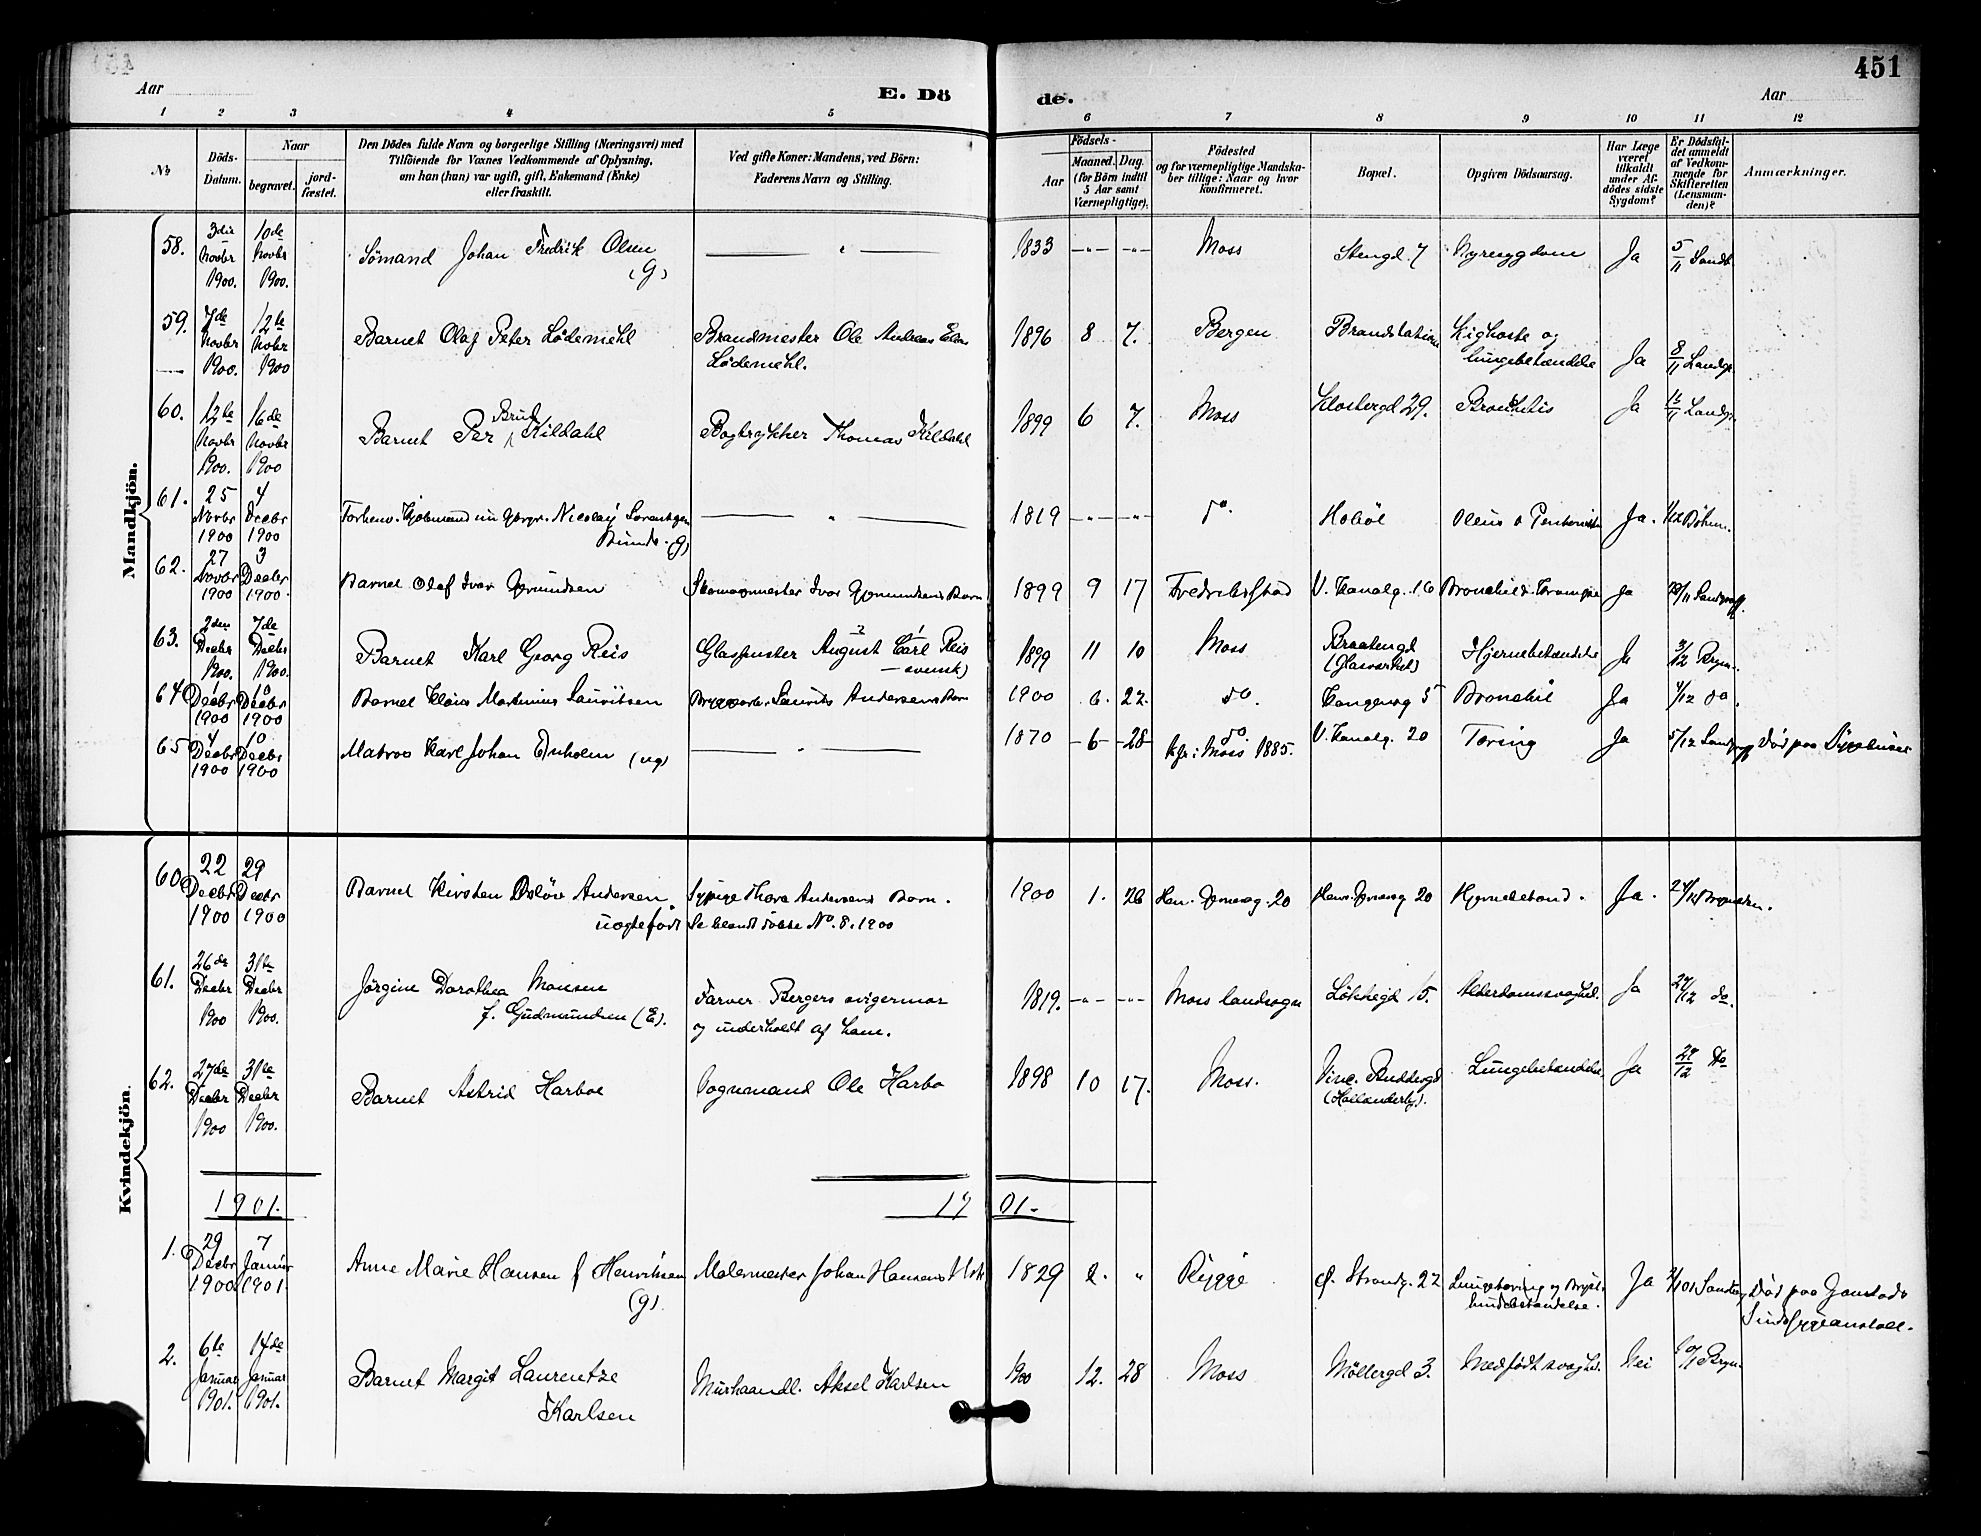 451
Aar
E. Dö
de.
Aar
1 2 3 4 5 6 7 8 9 10 11 12
No
Döds-Datum.
Naar
begravet.
jord-fæstet.
Den Dödes fulde Navn og borgerlige Stilling (Næringsvei) med
Tilföiende for Voxnes Vedkommende af Oplysning,
om han (hun) var ugift, gift, Enkemand (Enke)
eller fraskilt.
Ved gifte Koner: Mandens, ved Börn:
Faderens Navn og Stilling.
Födsels-
Aar
Maaned. Dag.
(for Börn indtil
5 Aar samt
Værnepligtige).
Födested
og for værnepligtige Mandska-
ber tillige: Naar og hvor
konfirmeret.
Bopæl.
Opgiven Dödsaarsag.
Har Læge
været
tilkaldt
under Af-
dödes sidste
Sygdom?
Er Dödsfal-
det anmeldt
af Vedkom-
mende for
Skifteretten
(Lensman-
den)?
Anmærkninger.
Mandkjön.
58. 3die Novbr 1900. 10de Novbr 1900. Sømand Johan Fredrik Olsen (G) — " — 1833 -"- -"- Moss Stengd. 7 Nyresygdom Ja 5/11 Landt
59. 7de Novbr 1900. 12te Novbr 1900 Barnet Olaf Peter Lødemehl Brandmester Ole Andreas
Lødemehl. 1896 8 7. Bergen Brandstation Kighoste og
lungebetændelse Ja 8/11 Landgr.
60. 12te Novbr 1900. 16de Novbr 1900 Barnet Per Brun Kildahl Bogtrykker Thomas Kildahl 1899 6 7. Moss Klostergd 29. Bronchitis Ja Landgr.
61. 25 Novbr 1900 4 Decbr 1900 Forhenv. Nicolay Lorentzen
(g) — " — 1819 -"- -"- do. Hobøl Ja. 1/12 Böhm.
62. 27 Novbr 1900 3 Decbr 1900. Barnet Olaf Ivar Gmundsen Skomagermester Ivar Gmundsens Barn 1899 9 17 Fredrikstad V. Kanalg. 16 Ja 28/11 Landgraff.
63. 2den Decbr 1900. 7de Decbr 1900. Barnet Karl Georg Reis Glaspuster August Carl Reis
— svensk) 1899 11 10 Moss Braatengd
(Glasværket) Hjernebetændelse Ja 3/12 Bergm.
64 1 Decbr 1900 10 Decbr 1900 Barnet Klaus Martinius Lauritsen Laurits Andersens Barn 1900 6. 22. do. Tangenvg 5 Bronchit Ja 4/12 do.
65 4 Decbr 1900 10 Decbr 1900 Matros Karl Johan Enholm (ug) — " — 1870 -6- -28- do.
kfr. i Moss 1885. V. Kanalg. 20 Tæring Ja 5/12 Død paa Sygehuset
Kvindekjön.
60 22 Decbr 1900 29 Decbr 1900 Barnet Kirsten Andersen
uægtefødt Sypige Thora Andersens Barn.
Se blandt døbte No. 8. 1900 1900 1. 26 20 20 Ja. 24/12
61. 26de Decbr 1900 31te Decbr 1900. Jørgine Dorothea Monsen
f. Gudmundsen (E). Farver Bergers svigermor
og underholdt af ham. 1819. -"- -"- Moss landsogn Løkkegd 15. Alderdomssvaghed. Ja 27/12 do.
62. 27de Decbr 1900 31te Decbr 1900. Barnet Astrid Harboe Vognmand Ole Harbo 1898 10 17. Moss. Vinc. Buddesgd
(Hollenderby). Lungebetændelse. Ja 28/12 Do
1901. 19 01.
1. 29 Decbr 1900 7 Januar 1901. Anne Marie Hansen f Henriksen
(g). Malermester Johan Hansens 1829 2. " Rygge Ø. Strandg. 22 Lungetæring og Bryst-
hindebetændelse. Ja Død paa Gaustads
Sindssygeanstalt.
2. 6te Januar 1901. 14de Januar 1901. Barnet Margit Laurentze
Karlsen Murhaandl. Aksel Karlsen 1900 12. 28 Moss Möllergd 3. Medfødt svaghed. Nei Bergm.